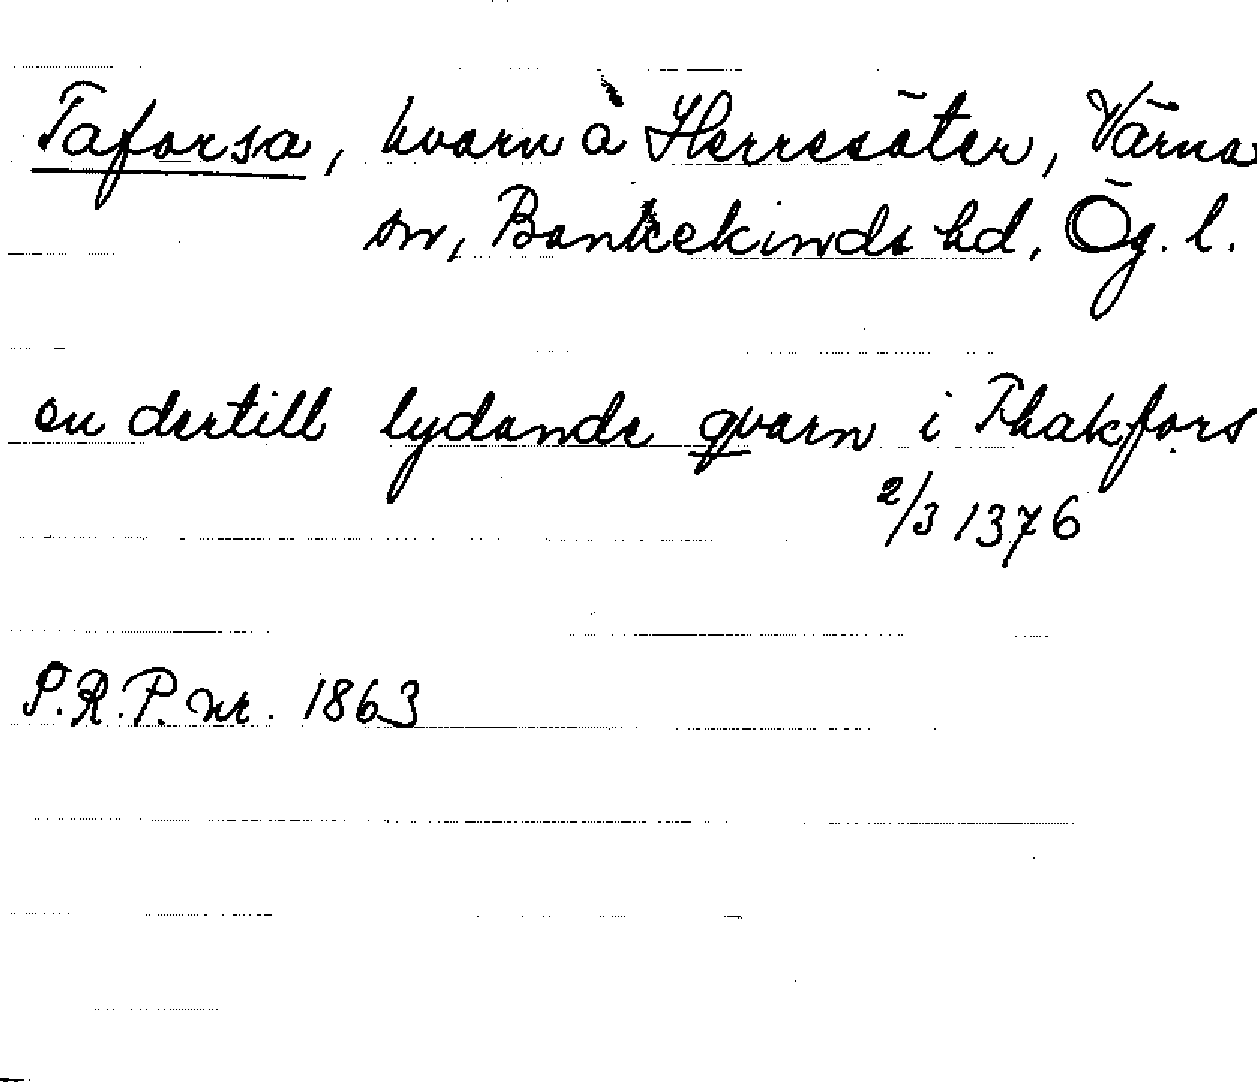 Taforsa, kvarn å Herresäter, Värna
sn, Bankekinds hd, Ög. l.
en dertill lydande qvarn i Thakfors
2/3 1376
S.R.P. nr. 1863